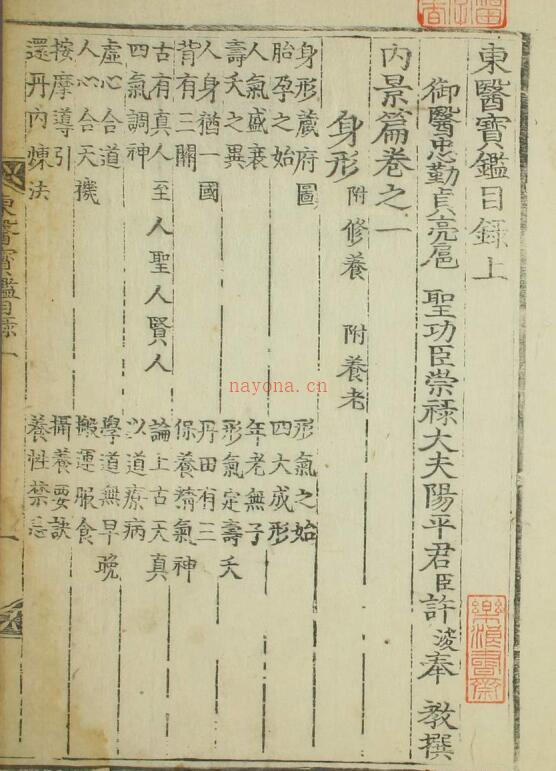 東醫寶鑑目錄上
御醫忠勤貞亮扈 聖功臣崇祿大夫陽平君臣許浚奉 教撰
內景篇卷之一
身形 附修養 附養老
身形藏府圖 形氣之始
胎孕之始 四大成形
人氣盛衰 年老無子
壽夭之異 形氣定壽夭
人身猶一國 丹田有三
背有三關 保養精氣神
古有真人至人聖人賢人 論上古天真
四氣調神 以道療病
虛心合道 學道無早晚
人心合天機 搬運服食
按摩導引 攝養要訣
還丹內煉法 養性禁忌
東醫寶鑑目錄 一
nayona.cn